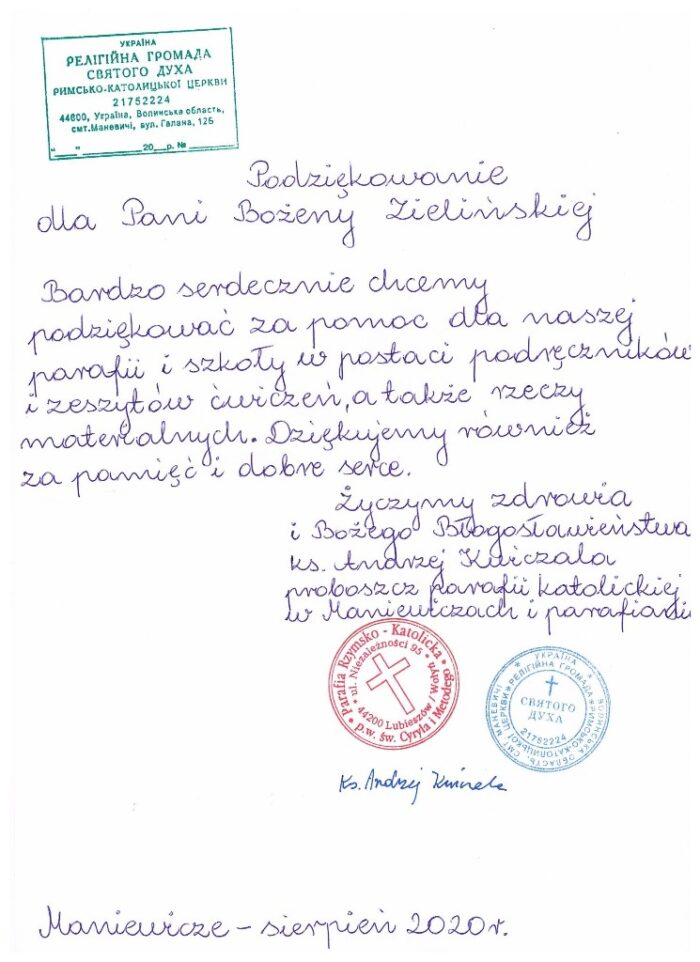 УКРАЇНА
РЕЛІГІЙНА ГРОМАДА
СВЯТОГО ДУХА
РИМСЬКО-КАТОЛИЦЬКОЇ ЦЕРКВИ
21752224
44600, Україна, Волинська область,
смт.Маневичі, вул. Галана, 12Б
"___" ________ 20__р. № ______
Podziękowanie
dla Pani Bożeny Zielińskiej
Bardzo serdecznie chcemy
podziękować za pomoc dla naszej
parafii i szkoły w postaci podręczników
i zeszytów ćwiczeń, a także rzeczy
materialnych. Dziękujemy również
za pamięć i dobre serce.
Życzymy zdrowia
i Bożego Błogosławieństwa
ks. Andrzej Kwiczala
proboszcz parafii katolickiej
w Maniewiczach i parafiani
Parafia Rzymsko - Katolicka
p.w. św. Cyryla i Metodego
ul. Niezależności 95
44200 Lubieszów / Wołyń
УКРАЇНА
ВОЛИНСЬКА ОБЛАСТЬ, СМТ МАНЕВИЧІ
РЕЛІГІЙНА ГРОМАДА
РИМСЬКО-КАТОЛИЦЬКОЇ ЦЕРКВИ
СВЯТОГО
ДУХА
21752224
Ks. Andrzej
Maniewicze - sierpień 2020r.